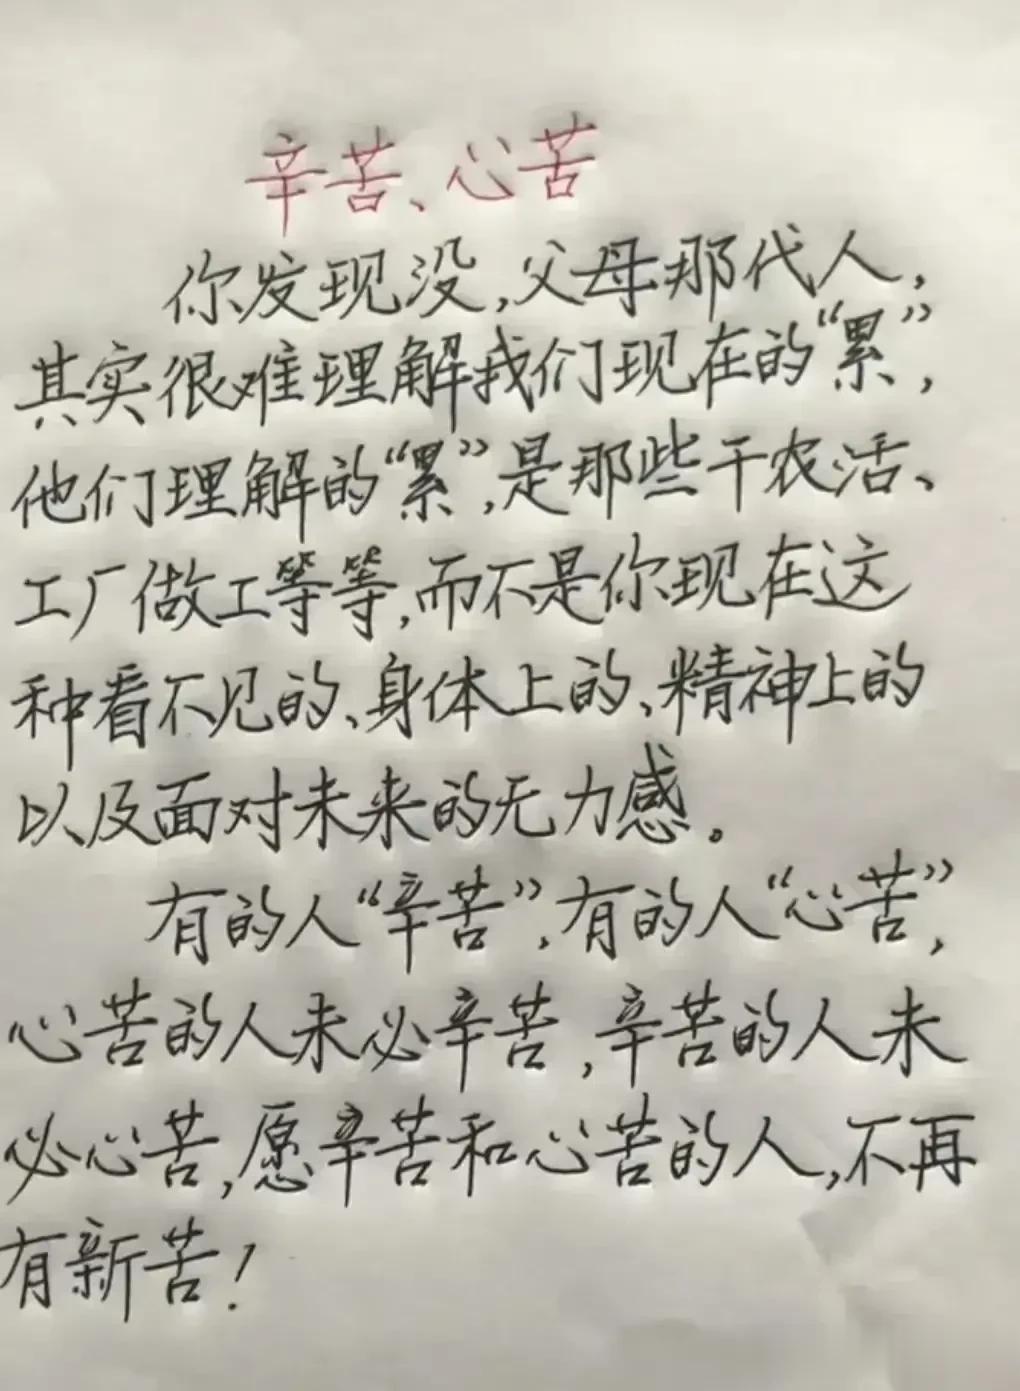 辛苦、心苦
你发现没,父母那代人,
其实很难理解我们现在的“累”,
他们理解的“累”,是那些干农活、
工厂做工等等,而不是你现在这
种看不见的、身体上的、精神上的
以及面对未来的无力感。
有的人“辛苦”,有的人“心苦”,
心苦的人未必辛苦,辛苦的人未
必心苦,愿辛苦和心苦的人,不再
有新苦!